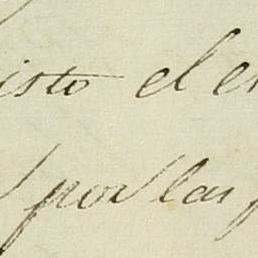 isto el en
por las